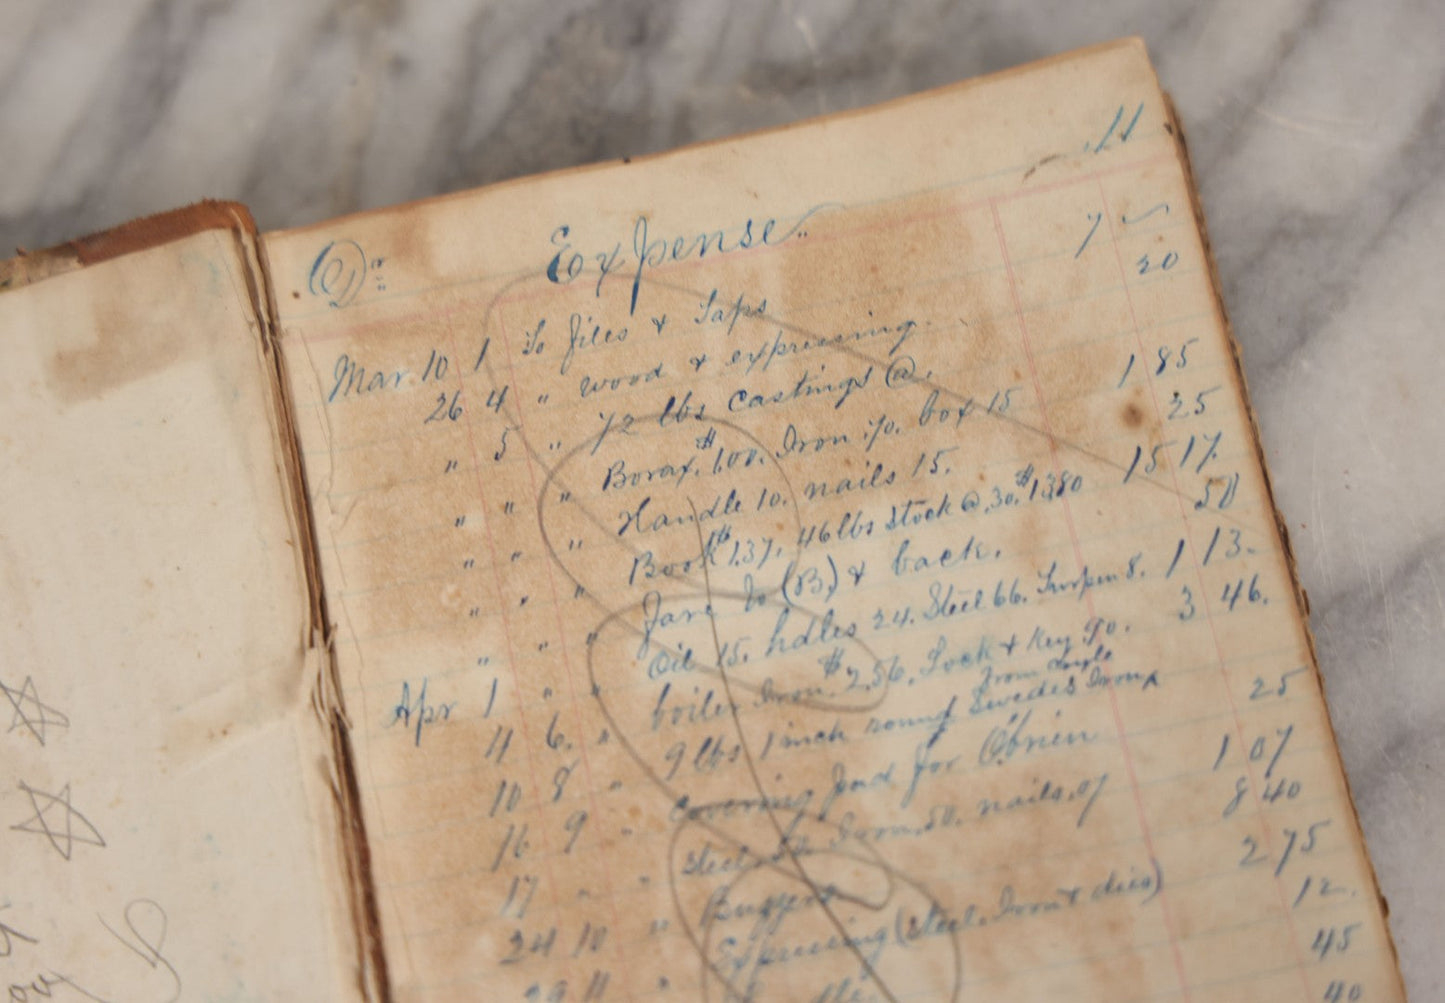 11
Dr. Expense
Mar 10 1 To files & Taps 7 ✓
26 4 " wood & expressing. 20
" 5 " 72 lbs castings @.
" " " Borax, $1.00. Iron .70. box 15 1 85
" " " Handle 10. nails 15. 25
" " " Book $1.37. 46 lbs stock @ .30. $13.80 15 17.
" " " Fare to (B.) & back. 50
Apr 1 " " Oil 15. hdles 24. Steel 66. 8. 1 13.
4 6. " boiler Iron $2.56. Lock & Key .90. 3 46.
10 8 " 9 lbs 1 inch round Swedes Iron from
16 9 " Covering for O'brien 25
17 " " Steel Iron, .50. nails .07 1 07
24 10 " 8 40
29 11 " Expressing (Steel, Iron & dies) 2 75
12.
45
40